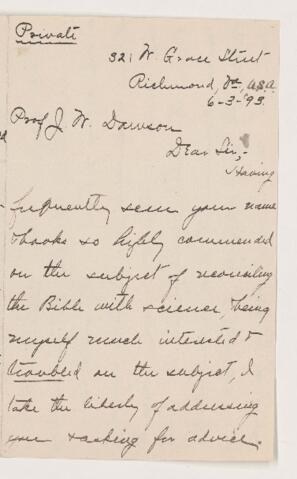 Private
321 W. Grace Street
Richmond, Va., U.S.A.
6-3-'93.
Prof J. W. Dawson
Dear Sir;-
Having
frequently seen your name
& books so highly commended
on the subject of reconciling
the Bible with science, being
myself much interested &
troubled on the subject, I
take the liberty of addressing
you & asking for advice.